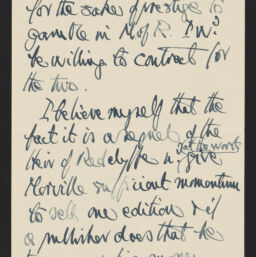 for the sake of prestige to
gamble in M of R. I wd
be willing to contract for
the two.
I believe myself that the
fact it is a sequel of the
Heir of Redclyffe wd at the worst give
Morville sufficient momentum
to sell one edition & if
a publisher does that he